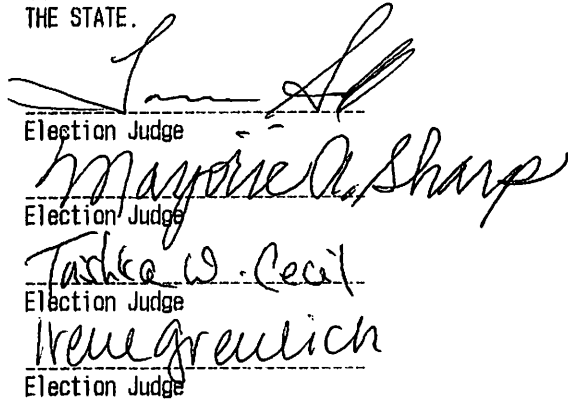 THE STATE.
Election Judge
Marjorie A. Sharp
Election Judge
Tashka W. Cecil
Election Judge
Irene Greulich
Election Judge